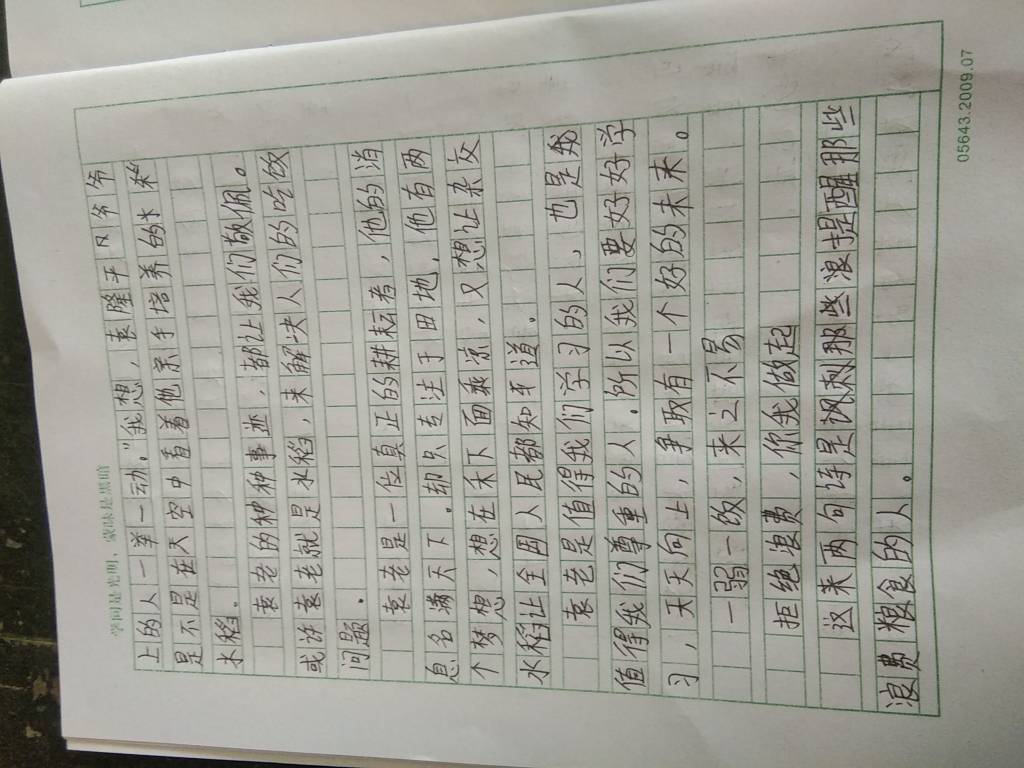 学问是光明，蒙昧是黑暗
上的人一举一动。"我想，袁隆平爷爷
是不是在天空中看着他亲手培养的水
水稻。
袁老的种种事迹，都让我们敬佩。
或许袁老就是水稻，来解决人们的吃饭
问题。
袁老是一位真正的耕耘者，他的消
息名满天下。却只专注于田地，他有两
个梦想，想在禾下面乘凉，又想让杂交
水稻让全国人民都知平道。
袁老是值得我们学习的人，也是我
值得我们尊重的人。所以我们要好好学
习，天天向上，争取有一个好的未来。
一粥一饭，来之不易
拒绝浪费，你我做起
这来两句诗是讽刺那些浪提醒那些
浪费粮食的人。
05643.2009.07